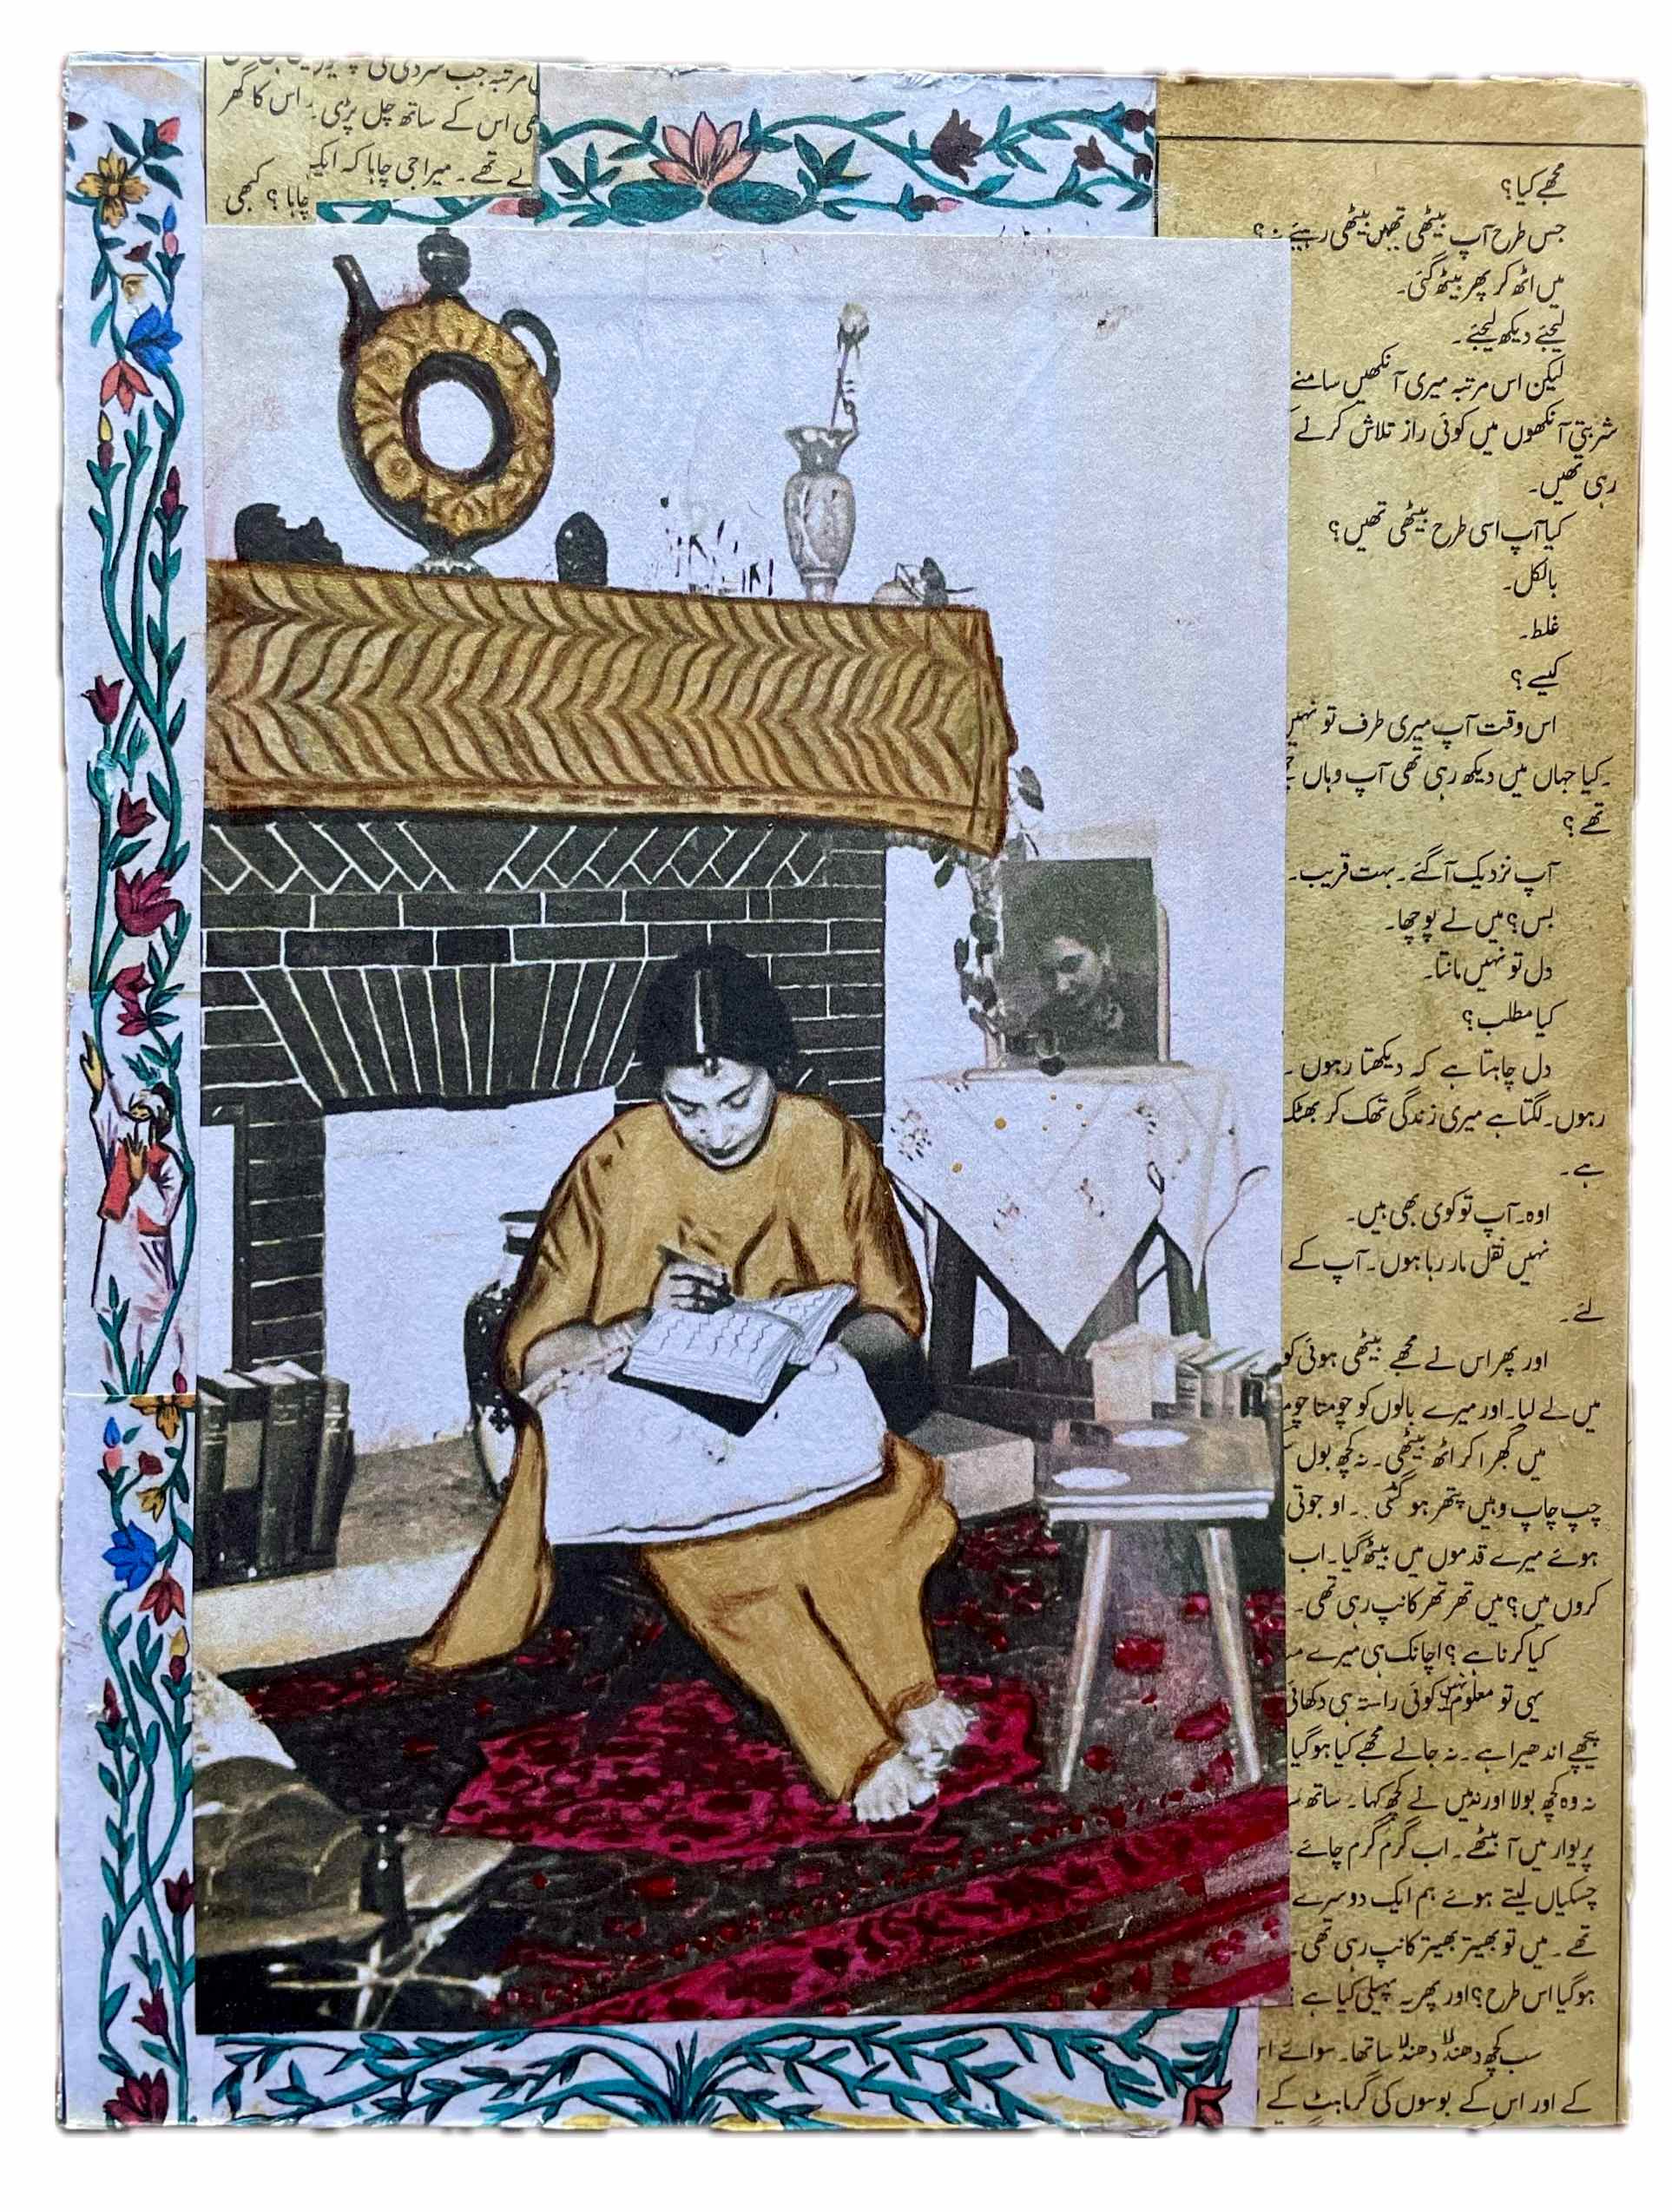 مرتبہ جب سردی کی
بھی اس کے ساتھ چل پڑی۔ اس کا گھر
لے تھے۔ میرا جی چاہا کہ ایک
چاہا؟ کبھی
مجھے کیا؟
جس طرح آپ بیٹھی تھیں بیٹھی رہیئے
میں اٹھ کر پھر بیٹھ گئی۔
لیجئے دیکھ لیجئے۔
لیکن اس مرتبہ میری آنکھیں سامنے
شربتی آنکھوں میں کوئی راز تلاش کرنے
رہی تھیں۔
کیا آپ اسی طرح بیٹھی تھیں؟
بالکل۔
غلط۔
کیسے؟
اس وقت آپ میری طرف تو نہیں
۔ کیا جہاں میں دیکھ رہی تھی آپ وہاں
تھے؟
آپ نزدیک آگئے۔ بہت قریب۔
بس؟ میں نے پوچھا۔
دل تو نہیں مانتا۔
کیا مطلب؟
دل چاہتا ہے کہ دیکھتا رہوں۔
رہوں۔ لگتا ہے میری زندگی تھک کر بھٹک
ہے۔
اوہ۔ آپ تو کوی بھی ہیں۔
نہیں نقل مار رہا ہوں۔ آپ کے
لئے۔
اور پھر اس نے مجھے بیٹھی ہوئی کو
میں لے لیا۔ اور میرے بالوں کو چومتا
میں گھبرا کر اٹھ بیٹھی۔ نہ کچھ بول
چپ چاپ وہیں پتھر ہو گئی۔ او جوتی
ہوئے میرے قدموں میں بیٹھ گیا۔ اب
کروں میں؟ میں تھر تھر کانپ رہی تھی۔
کیا کرنا ہے؟ اچانک ہی میرے
یہی تو معلوم نہیں کوئی راستہ ہی دکھائی
پیچھے اندھیرا ہے۔ نہ جانے مجھے کیا ہوگیا
نہ وہ کچھ بولا اور نہ میں نے کچھ کہا۔ ساتھ
پریوار میں آ بیٹھے۔ اب گرم گرم چائے
چسکیاں لیتے ہوئے ہم ایک دوسرے
تھے۔ میں تو بھیتر بھیتر کانپ رہی تھی۔
ہوگیا اس طرح؟ اور پھر یہ پہیلی کیا ہے
سب کچھ دھندلا دھندلا سا تھا۔ سوائے
کے اور اس کے بوسوں کی گرماہٹ کے